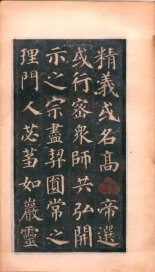 精義或名高　帝選
或行密眾師共弘開
示之宗盡契圓常之
理門人苾蒭如巖靈